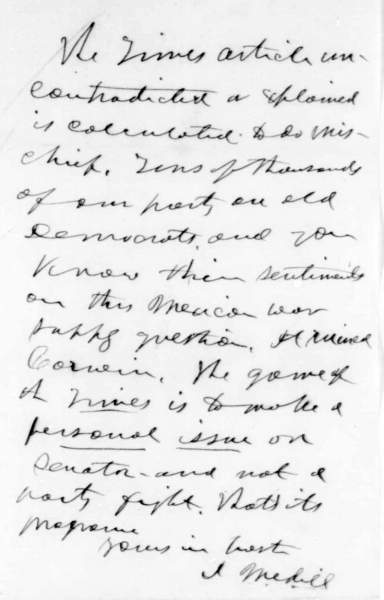 The Times article un-
contradicted or explained
is calculated to do mis-
chief. Tens of thousands
of our party are old
Democrats, and you
know their sentiments
on this Mexican war
supply question. It ruined
Corwin. The game of
the Times is to make a
personal issue on
Senator - and not a
party fight. That's its
programe
yours in haste
J Medill